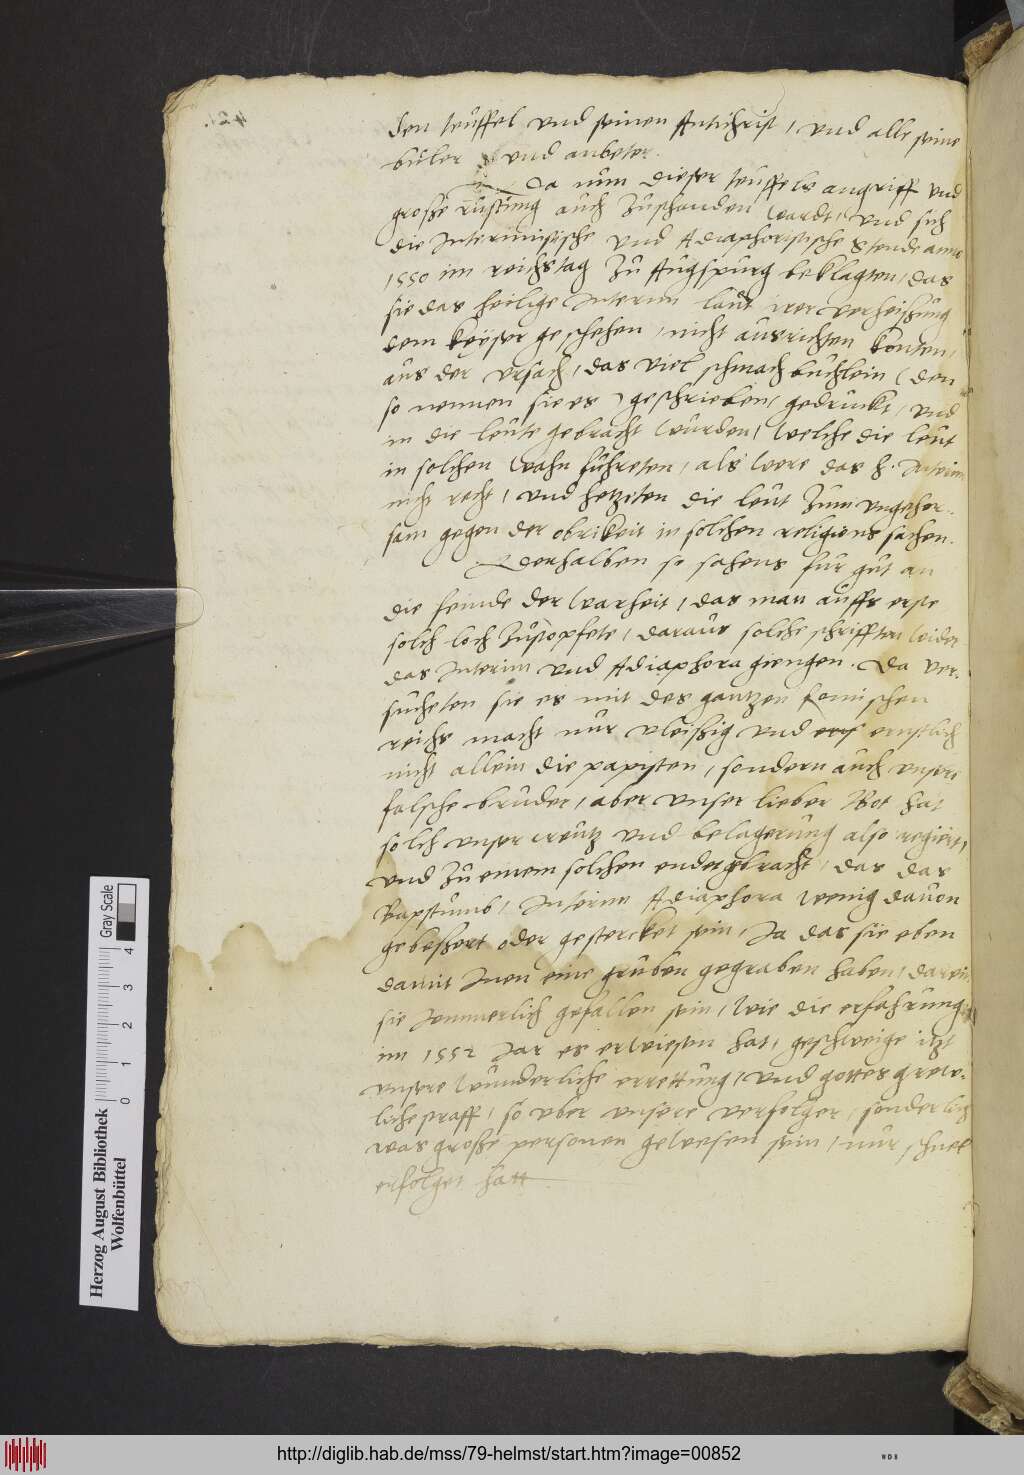 den teuffel vnd seinen Antichrist, vnd alle seine
buler vnd anbeter.
Da nun dieser teuffels angriff vnd
große rustung auch zuschanden wardt, vnd sich
die Interimistische vnd Adiaphoristische Stende anno
1550 im reichstag zu Augspurg beklagten, das
sie das heilige Interim laut irer verheißung
dem keyser geschehen, nicht ausrichten konten,
aus der vrsach, das viel schmach buchlein (den
so nennen sie es) geschrieben, gedruckt, vnd
in die leute gebracht wurden, welche die leut
in solchen wahn fuhreten, als were das h. Interim
nicht recht, vnd hetzeten die leut zum vngehor-
sam gegen der obrikeit in solchen religions sachen.
Derhalben so sahens fur gut an
die feinde der warheit, das man auffs erste
solch loch zustopfete, daraus solche schrifften wider
das Interim vnd Adiaphora giengen. Da ver-
sucheten sie es mit des gantzen Romischen
reichs macht nur vleißig vnd ernstlich
nicht allein die papisten, sondern auch vnsere
falsche bruder, aber vnser lieber Got hat
solch vnser creutz vnd belagerung also regiert,
vnd zu einem solchen ende gebracht, das das
Bapstumb, Interim Adiaphora wenig dauon
gebeßert oder gestercket sein, Ja das sie eben
damit Inen eine gruben gegraben haben, darein
sie Jemmerlich gefallen sein, wie die erfahrung
im 1552 Jar es erwiesen hat, geschweige itzt
vnsere wunderliche errettung, vnd gottes grew-
liche straff, so vber vnsere verfolger, sonderlich
was große personen gewesen sein, nur schnel
erfolget hatt
421.
Herzog August Bibliothek
Wolfenbüttel
0 1 2 3 4
Gray Scale
http://diglib.hab.de/mss/79-helmst/start.htm?image=00852
WDB